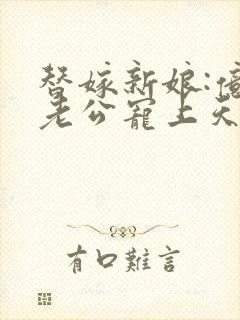 替嫁新娘:億
老公寵上天
有口難言